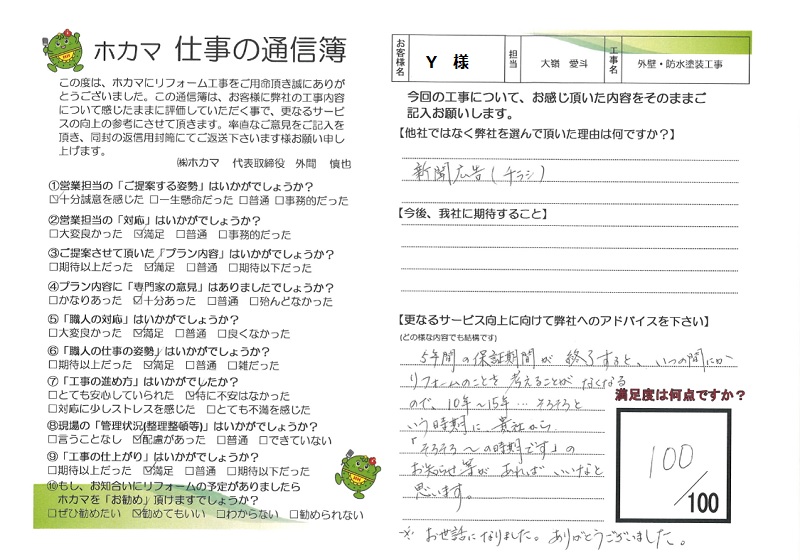 ホカマ 仕事の通信簿
この度は、ホカマにリフォーム工事をご用命頂き誠にありが
とうございました。この通信簿は、お客様に弊社の工事内容
について感じたままに評価していただく事で、更なるサービ
スの向上の参考にさせて頂きます。率直なご意見をご記入を
頂き、同封の返信用封筒にてご返送下さいます様お願い申し
上げます。
㈱ホカマ 代表取締役 外間 慎也
①営業担当の「ご提案する姿勢」はいかがでしょうか?
☑十分誠意を感じた □一生懸命だった □普通 □事務的だった
②営業担当の「対応」はいかがでしょうか?
□大変良かった ☑満足 □普通 □事務的だった
③ご提案させて頂いた「プラン内容」はいかがでしょうか?
□期待以上だった ☑満足 □普通 □期待以下だった
④プラン内容に「専門家の意見」はありましたでしょうか?
□かなりあった ☑十分あった □普通 □殆んどなかった
⑤「職人の対応」はいかがでしょうか?
□大変良かった ☑満足 □普通 □良くなかった
⑥「職人の仕事の姿勢」はいかがでしょうか?
□期待以上だった ☑満足 □普通 □雑だった
⑦「工事の進め方」はいかがでしたか?
□とても安心していられた ☑特に不安はなかった
□対応に少しストレスを感じた □とても不満を感じた
⑧現場の「管理状況(整理整頓等)」はいかがでしょうか?
□言うことなし ☑配慮があった □普通 □できていない
⑨「工事の仕上がり」はいかがでしょうか?
□期待以上だった ☑満足 □普通 □期待以下だった
⑩もし、お知合いにリフォームの予定がありましたら
ホカマを「お勧め」頂けますでしょうか?
□ぜひ勧めたい ☑勧めてもいい □わからない □勧められない
お客様名 Y 様 担当 大嶺 愛斗 工事名 外壁・防水塗装工事
今回の工事について、お感じ頂いた内容をそのままご
記入お願いします。
【他社ではなく弊社を選んで頂いた理由は何ですか?】
新聞広告(チラシ)
【今後、我社に期待すること】
【更なるサービス向上に向けて弊社へのアドバイスを下さい】
(どの様な内容でも結構です)
5年間の保証期間が終了すると、いつの間にか
リフォームのことを考えることがなくなる
ので、10年~15年…そろそろと
いう時期に貴社から
「そろそろ~の時期です」の
お知らせ等があればいいなと
思います。
満足度は何点ですか?
100/100
※ お世話になりました。ありがとうございました。